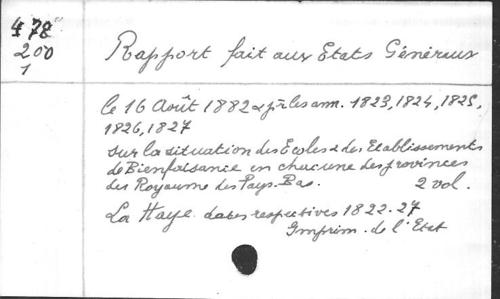 478
200
1
Rapport fait aux Etats Généraux
le 16 Août 1882 & pr les ann. 1823, 1824, 1825,
1826, 1827
sur la situation des Ecoles & des Etablissements
de Bienfaisance en chacune des provinces
du Royaume des Pays-Bas. 2 vol.
La Haye. dates respectives 1822-27
Imprim. de l'Etat